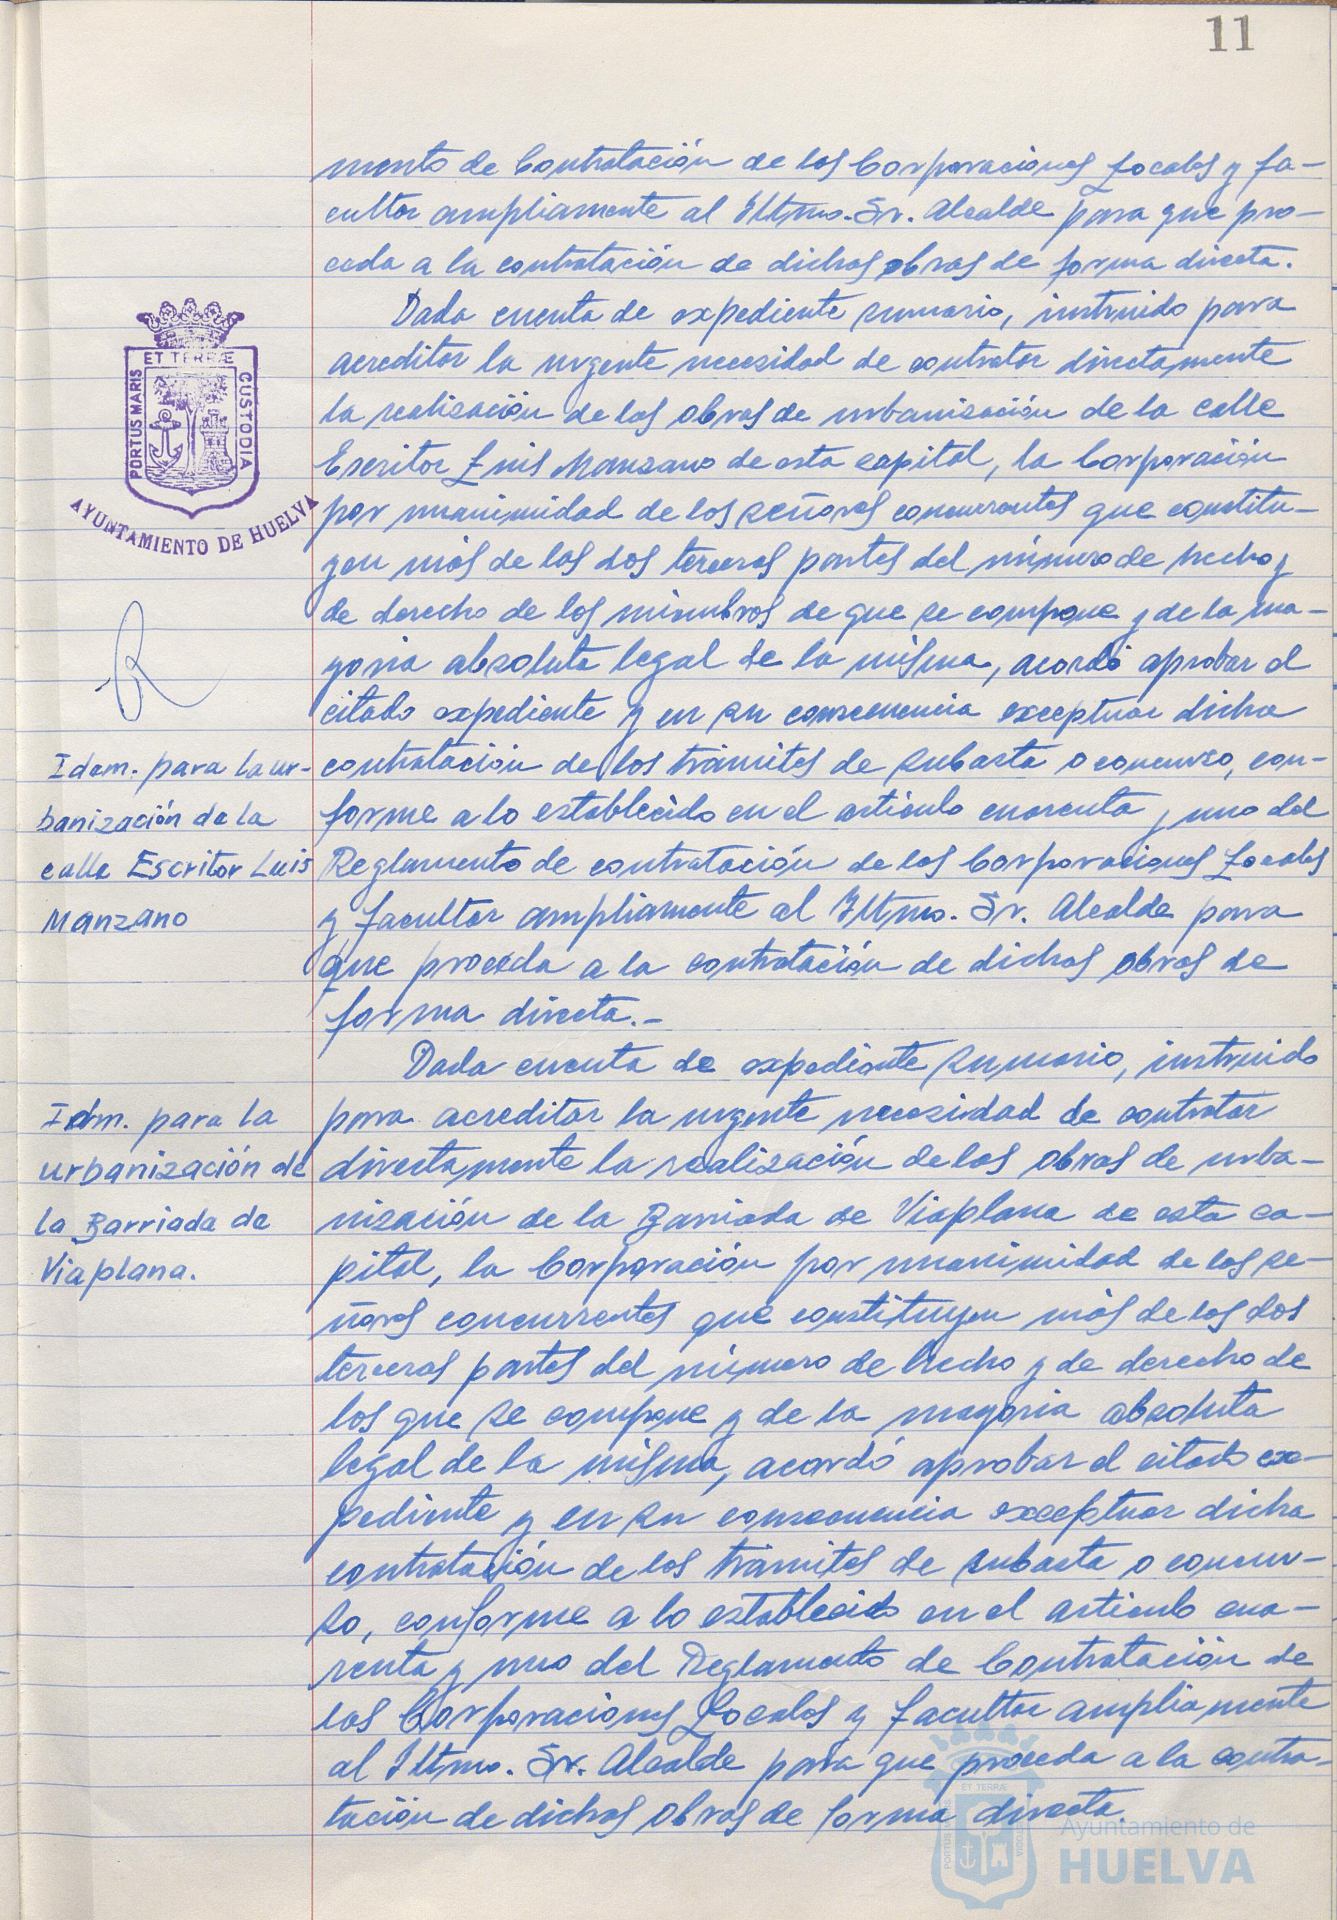 11
mento de Contratación de las Corporaciones Locales y fa-
cultar ampliamente al Iltmo. Sr. Alcalde para que pro-
ceda a la contratación de dichas obras de forma directa.
Dada cuenta de expediente sumario, instruido para
acreditar la urgente necesidad de contratar directamente
la realización de las obras de urbanización de la calle
Escritor Luis Manzano de esta capital, la Corporación
por unanimidad de los señores concurrentes que constitu-
yen más de las dos terceras partes del número de hecho y
de derecho de los miembros de que se compone y de la ma-
yoria absoluta legal de la misma, acordó aprobar el
citado expediente y en su consecuencia exceptuar dicha
contratación de los trámites de subasta o concurso, con-
forme a lo establecido en el artículo cuarenta y uno del
Reglamento de contratación de las Corporaciones Locales
y facultar ampliamente al Iltmo. Sr. Alcalde para
que proceda a la contratación de dichas obras de
forma directa.-
Dada cuenta de expediente sumario, instruido
para acreditar la urgente necesidad de contratar
directamente la realización de las obras de urba-
nización de la Barriada de Viaplana de esta ca-
pital, la Corporación por unanimidad de los se-
ñores concurrentes que constituyen más de las dos
terceras partes del número de hecho y de derecho de
los que se compone y de la mayoria absoluta
legal de la misma, acordó aprobar el citado ex-
pediente y en su consecuencia exceptuar dicha
contratación de los trámites de subasta o concur-
so, conforme a lo establecido en el artículo cua-
renta y uno del Reglamento de Contratación de
las Corporaciones Locales y facultar ampliamente
al Iltmo. Sr. Alcalde para que proceda a la contra-
tación de dichas obras de forma directa.
PORTUS MARIS
ET TERRÆ
CUSTODIA
AYUNTAMIENTO DE HUELVA
Idem. para la ur-
banización de la
calle Escritor Luis
Manzano
Idm. para la
urbanización de
la Barriada de
Viaplana.
PORTUS MARIS
ET TERRÆ
CUSTODIA
Ayuntamiento de
HUELVA